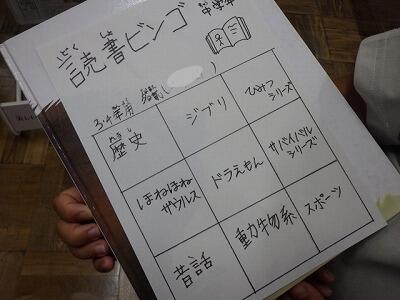 どくしょ
読書ビンゴ 中学年
3・4年用 名前( )
れきし
歴史
ジブリ
ひみつ
シリーズ
ほねほね
ザウルス
ドラえもん
サバイバル
シリーズ
昔話
動物系
スポーツ